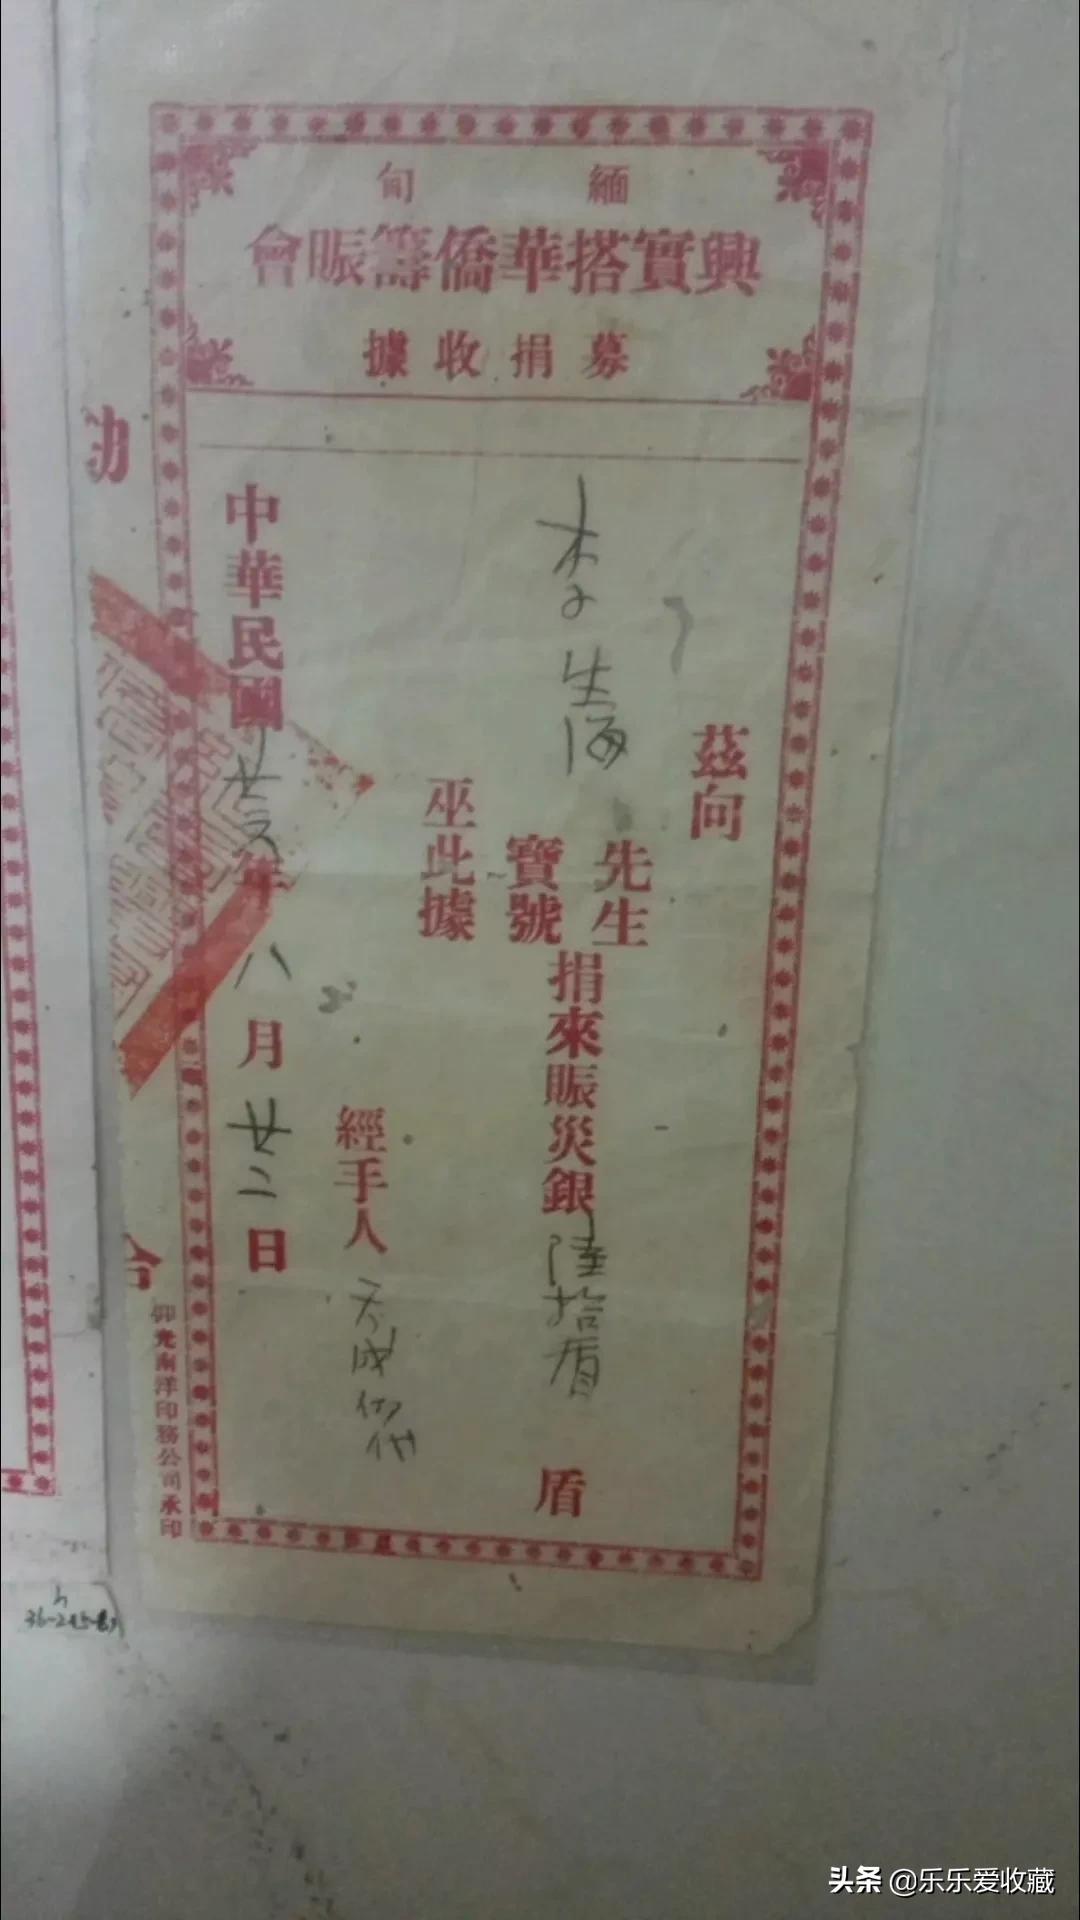 緬甸
興實搭華僑籌賑會
募捐收據
茲向
李生海
先生
寶號
捐來賑災銀陸拾盾
盾
巫此據
經手人
天成
中華民國廿八年八月廿二日
仰光南洋印務公司承印
头条 @乐乐爱收藏